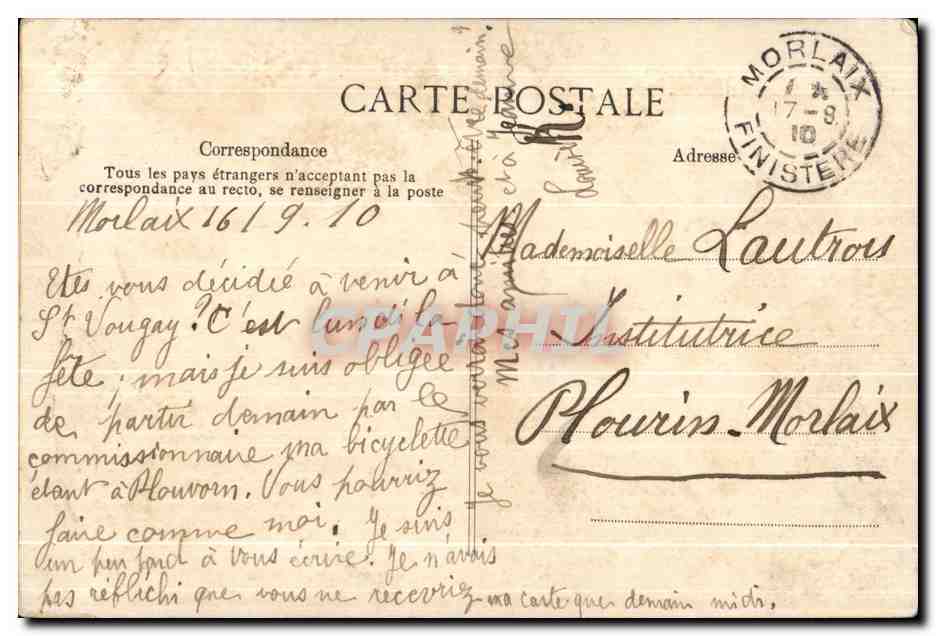 CARTE POSTALE
Correspondance
Tous les pays étrangers n'acceptant pas la
correspondance au recto, se renseigner à la poste
Adresse
MORLAIX
17-9
10
FINISTERE
Morlaix 16/9.10
Etes vous décidié à venir à
St Vougay? C'est lundi la
fête; mais je suis obligée
de partir demain par le
commissionnaire ma bicyclette
étant à Plouvorn. Vous pourriez
faire comme moi. Je suis
un peu tard à vous écrire. Je n'avais
pas réfléchi que vous ne recevriez ma carte que demain midi.
Je vous verrai donc demain.
Mes amitiés et à Jeanne
Mademoiselle Lautrou
Institutrice
Plourin-Morlaix
CPAPHIL